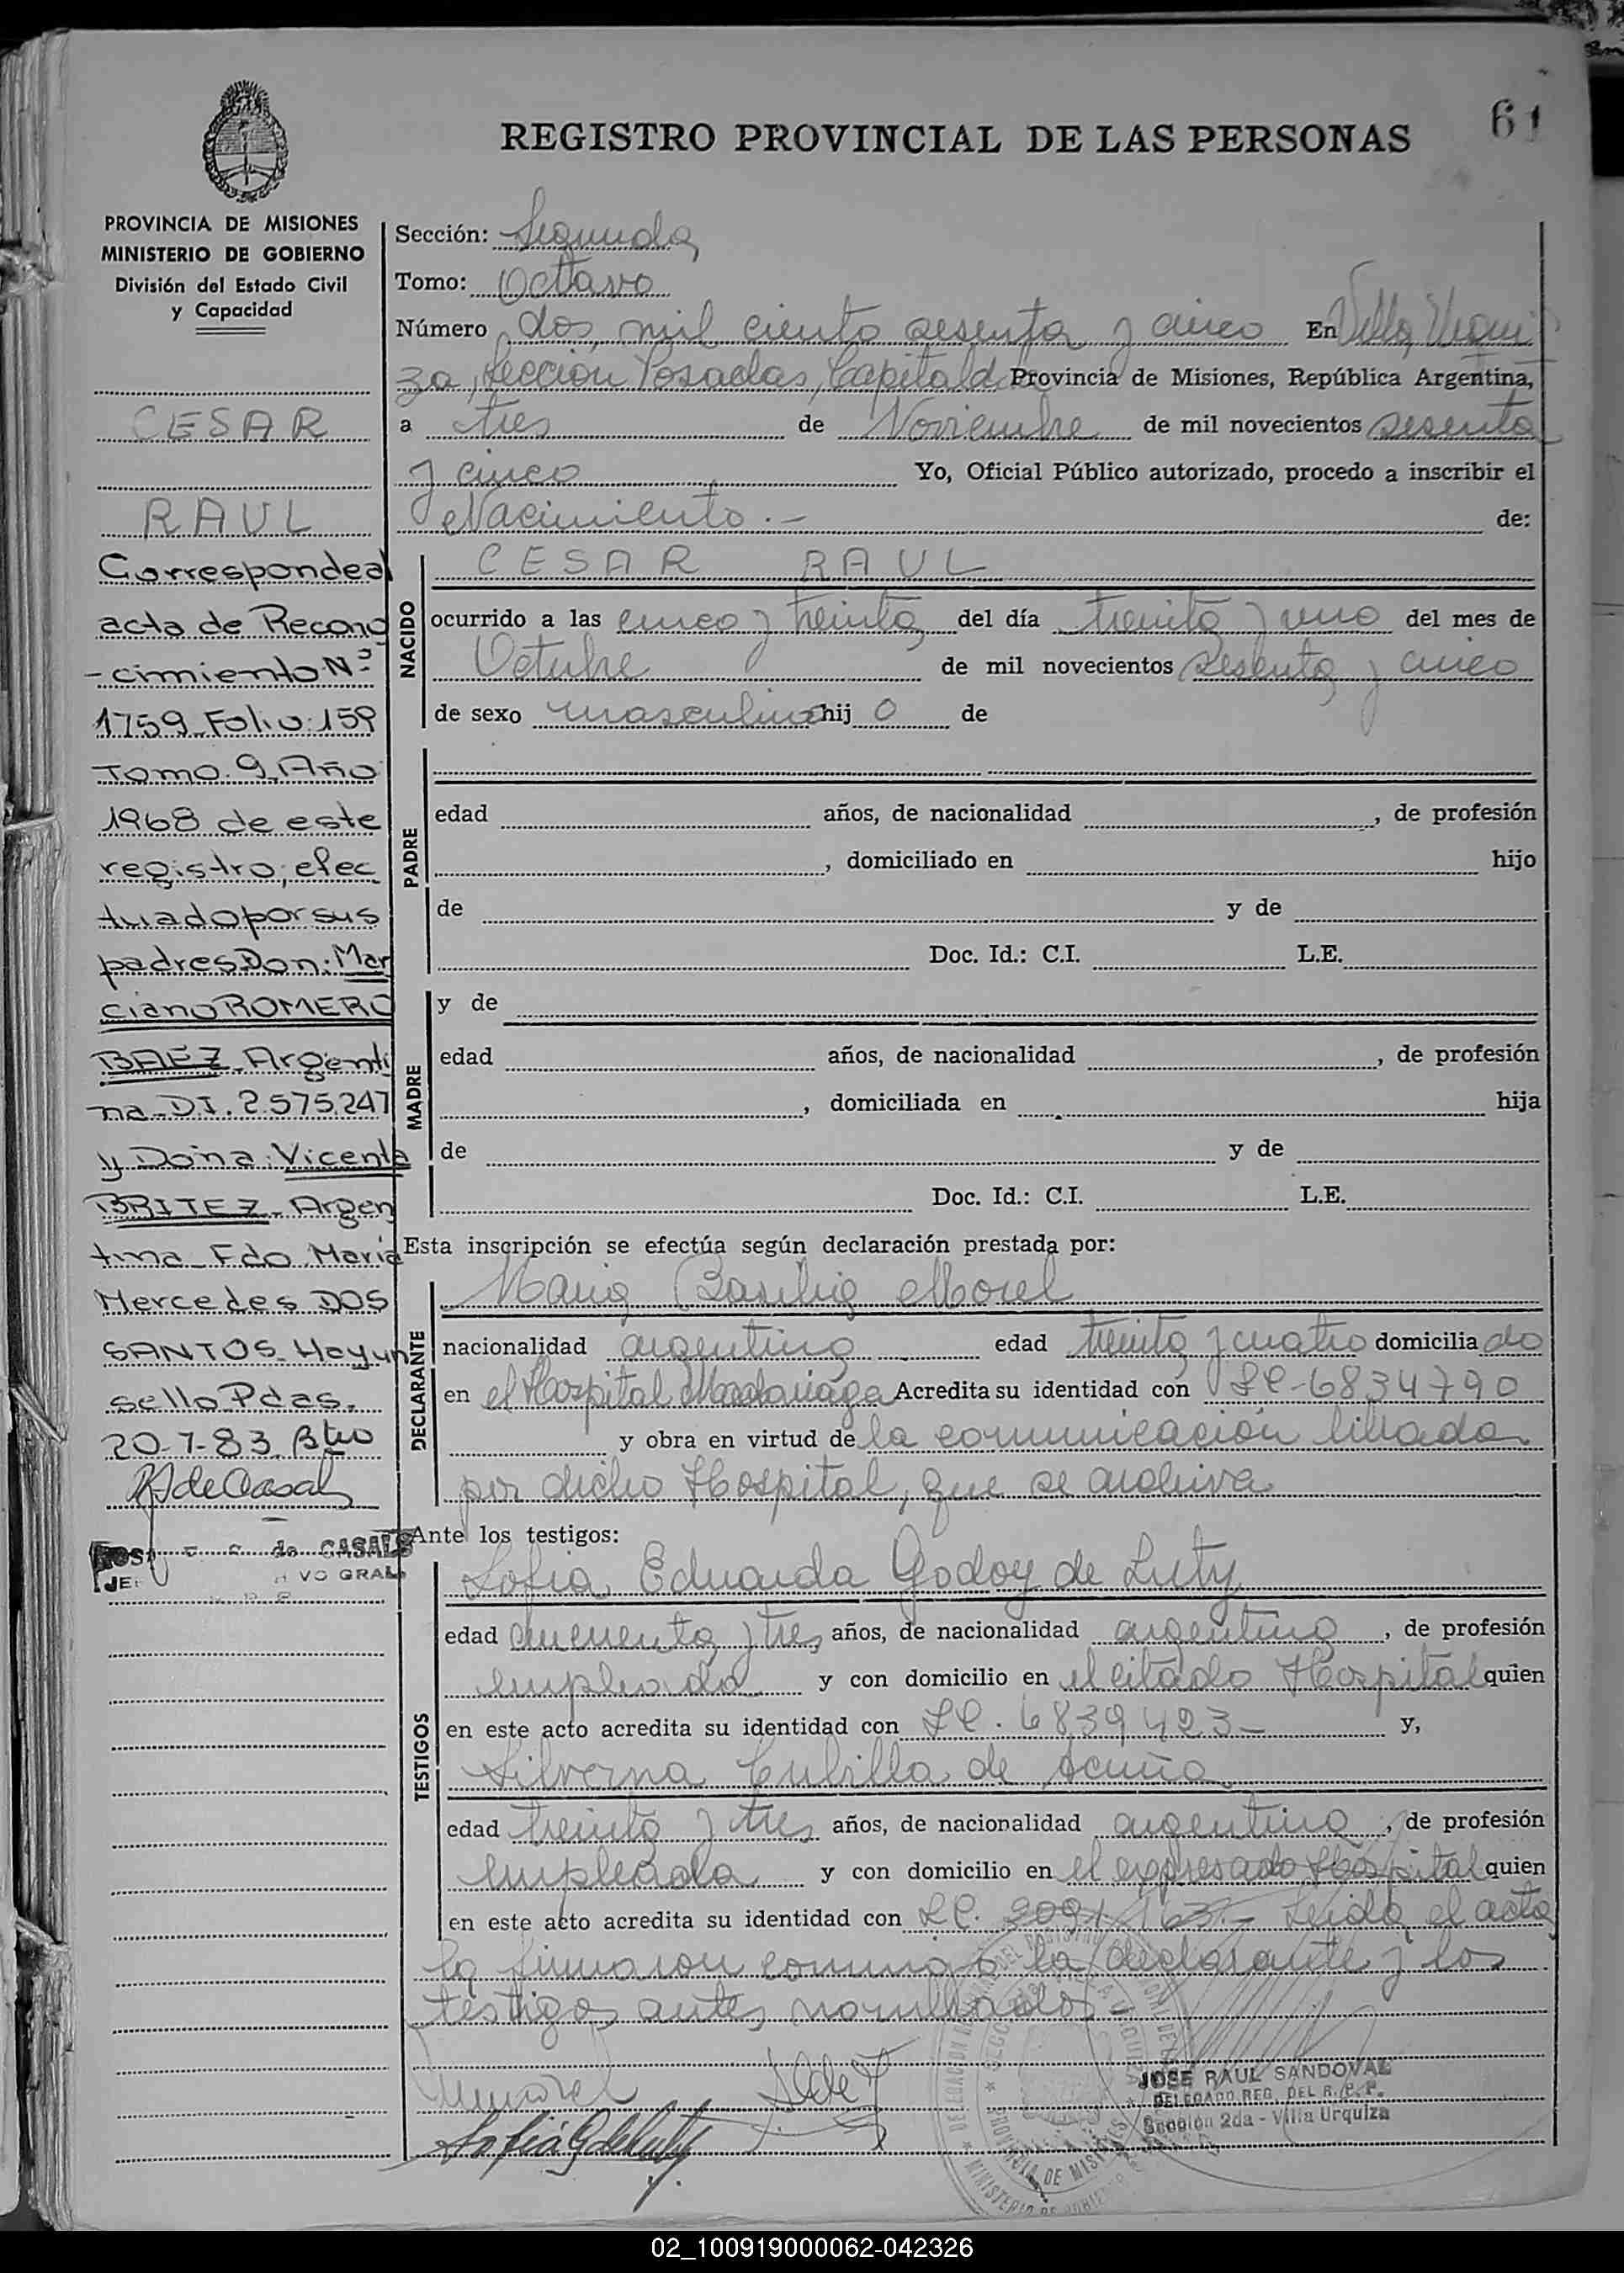 61
REGISTRO PROVINCIAL DE LAS PERSONAS
PROVINCIA DE MISIONES
MINISTERIO DE GOBIERNO
División del Estado Civil
y Capacidad
CESAR
RAUL
Corresponde al
acta de Recono
-cimiento Nº
1759 Folio 159
Tomo 9 Año
1968 de este
registro, efec
tuado por sus
padres Don: Mar
ciano ROMERO
BAEZ - Argenti
na - DI. 2.575.247
y Doña: Vicenta
BRITEZ - Argen
tina - Fdo. Maria
Mercedes DOS
SANTOS - Hay un
sello Pdas.
20-7-83
de CASALS
Sección: Segunda
Tomo: Octavo
Número dos mil ciento sesenta y cinco En Villa Urqui
za, Sección Posadas, Capital d Provincia de Misiones, República Argentina,
a tres de Noviembre de mil novecientos sesenta
y cinco Yo, Oficial Público autorizado, procedo a inscribir el
Nacimiento.- de:
NACIDO
CESAR RAUL
ocurrido a las cinco y treinta del día treinta y uno del mes de
Octubre de mil novecientos sesenta y cinco
de sexo masculino hij o de
PADRE
edad años, de nacionalidad , de profesión
, domiciliado en hijo
de y de
Doc. Id.: C.I. L.E.
MADRE
y de
edad años, de nacionalidad , de profesión
, domiciliada en hija
de y de
Doc. Id.: C.I. L.E.
Esta inscripción se efectúa según declaración prestada por:
DECLARANTE
Maria Basilia Morel
nacionalidad argentina edad treinta y cuatro domicilia do
en el Hospital Madariaga Acredita su identidad con LC-6834790
y obra en virtud de la comunicación librada
por dicho Hospital, que se archiva
Ante los testigos:
TESTIGOS
Sofia Eduarda Godoy de Luty
edad cincuenta y tres años, de nacionalidad argentina, de profesión
empleada y con domicilio en el citado Hospital quien
en este acto acredita su identidad con LC. 6839423- y,
Silverna Cubilla de Acuña
edad treinta y tres años, de nacionalidad argentina, de profesión
empleada y con domicilio en el expresado Hospital quien
en este acto acredita su identidad con LC. Leida el acta
la firmaron conmigo la declarante y los
testigos antes nombrados-
JOSE RAUL SANDOVAL
DELEGADO REG. DEL R. P. P.
Sección 2da - Villa Urquiza
02_100919000062-042326